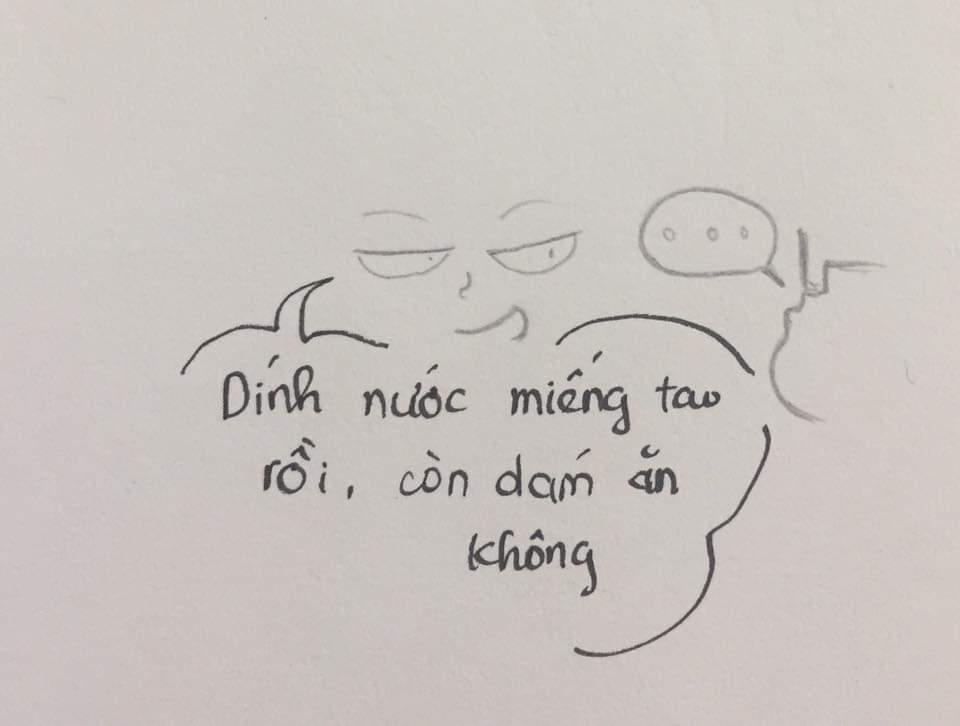 Dính nước miếng tao
rồi, còn dám ăn
không
...